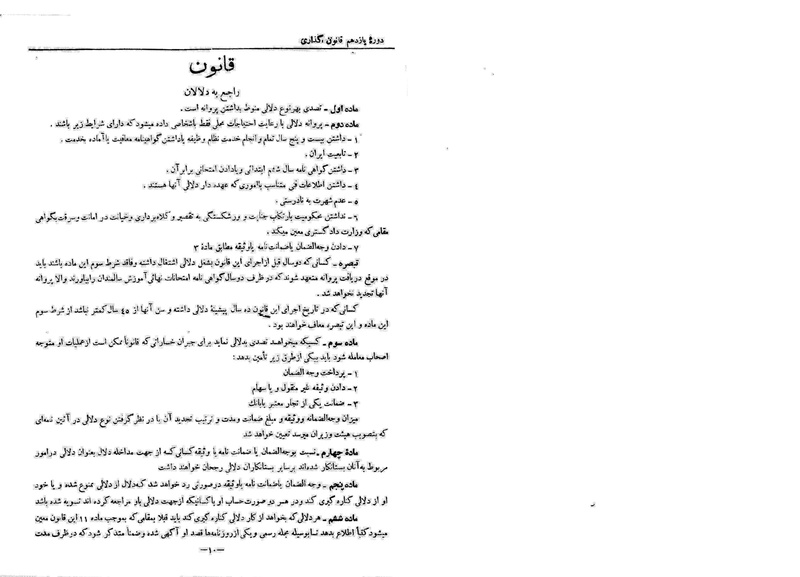 دورهٔ یازدهم قانون گذاری
قانون
راجع به دلالان
ماده اول ـ تصدی بهر نوع دلالی منوط بداشتن پروانه است .
ماده دوم ـ پروانه دلالی با رعایت احتیاجات محلی فقط باشخاصی داده میشود که دارای شرایط زیر باشند .
۱ ـ داشتن بیست و پنج سال تمام وانجام خدمت نظام وظیفه یاداشتن گواهینامه معافیت یا آماده بخدمت .
۲ ـ تابعیت ایران .
۳ ـ داشتن گواهی نامه سال ششم ابتدائی ویادادن امتحانی برابر آن .
٤ ـ داشتن اطلاعات فنی متناسب باموری که عهده دار دلالی آنها هستند .
٥ ـ عدم شهرت به نادرستی .
٦ ـ نداشتن محکومیت بارتکاب جنایت و ورشکستگی به تقصیر و کلاه برداری وخیانت در امانت وسرقت بگواهی
مقامی که وزارت دادگستری معین میکند .
۷ ـ دادن وجه الضمان یاضمانت نامه یاوثیقه مطابق ماده ۳
تبصره ـ کسانی که دوسال قبل از اجرای این قانون بشغل دلالی اشتغال داشته وفاقد شرط سوم این ماده باشند باید
در موقع دریافت پروانه متعهد شوند که در ظرف دوسال گواهی نامه امتحانات نهائی آموزش سالمندان رابیاورند والا پروانه
آنها تجدید نخواهد شد .
کسانی که در تاریخ اجرای این قانون ده سال پیشینهٔ دلالی داشته و سن آنها از ٤٥ سال کمتر نباشد از شرط سوم
این ماده و این تبصره معاف خواهند بود .
ماده سوم ـ کسیکه میخواهد تصدی بدلالی نماید برای جبران خساراتی که قانوناً ممکن است از عملیات او متوجه
اصحاب معامله شود باید بیکی از طرق زیر تأمین بدهد :
۱ ـ پرداخت وجه الضمان
۲ ـ دادن وثیقه غیر منقول و یا سهام
۳ ـ ضمانت یکی از تجار معتبر یا بانك
میزان وجه الضمانه ووثیقه و مبلغ ضمانت ومدت و ترتیب تجدید آن با در نظر گرفتن نوع دلالی در آئین نامه‌ای
که بتصویب هیئت وزیران میرسد تعیین خواهد شد
مادهٔ چهارم ـ نسبت بوجه الضمان یا ضمانت نامه یا وثیقه کسانی کسه از جهت مداخله دلال بعنوان دلالی در امور
مربوط به آنان بستانکار شده‌اند بر سایر بستانکاران دلالی رجحان خواهند داشت
ماده پنجم ـ وجه الضمان یاضمانت نامه یاوثیقه در صورتی رد خواهد شد که دلال از دلالی ممنوع شده و یا خود
او از دلالی کناره گیری کند ودر هسر دو صورت حساب او با کسانیکه از جهت دلالی باو مراجعه کرده اند تسویه شده باشد
ماده ششم ـ هر دلالی که بخواهد از کار دلالی کناره گیری کند باید قبلا بمقامی که بموجب ماده ۱۱ این قانون معین
میشود کتباً اطلاع بدهد تا بوسیله مجله رسمی و یکی از روزنامه‌ها قصد او آگهی شده وضمناً متذکر شود که در ظرف مدت
ـ ۱۰ ـ